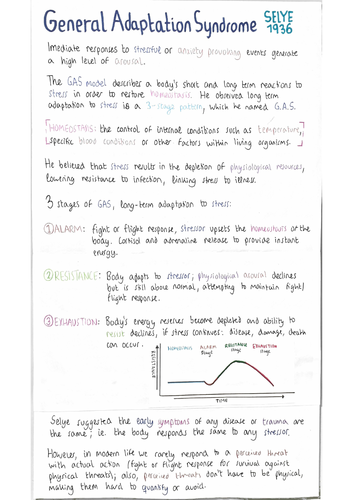 General Adaptation Syndrome SELYE 1936
Imediate responses to stressful or anxiety provoking events generate
a high level of arousal.
The GAS model describes a body's short and long term reactions to
stress in order to restore homeostasis. He observed long term
adaptation to stress is a 3-stage pattern, which he named G.A.S.
HOMEOSTASIS: the control of internal conditions such as temperature,
specific blood conditions or other factors within living organisms.
He believed that stress results in the depletion of physiological resources,
lowering resistance to infection, linking stress to illness.
3 stages of GAS, long-term adaptation to stress:
① ALARM: fight or flight response, stressor upsets the homeostasis of the
body. Cortisol and adrenaline release to provide instant
energy.
② RESISTANCE: Body adapts to stressor; physiological arousal declines
but is still above normal, attempting to maintain fight/
flight response.
③ EXHAUSTION: Body's energy reserves become depleted and ability to
resist declines, if stress continues: disease, damage, death
can occur.
HOMEOSTASIS ALARM stage RESISTANCE stage EXHAUSTION stage
TIME
Selye suggested the early symptoms of any disease or trauma are
the same; i.e. the body responds the same to any stressor.
However, in modern life we rarely respond to a perceived threat
with actual action (fight or flight response for survival against
physical threats); also, perceived threats don't have to be physical,
making them hard to quantify or avoid.